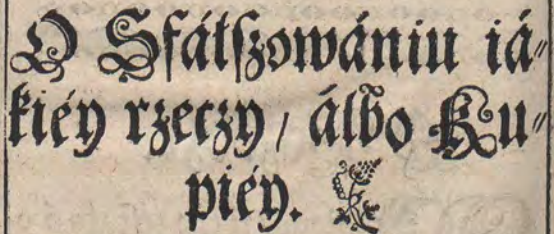 O Sfálſzowániu iá⸗
kiéy rzeczy / álbo Ku⸗
piéy.